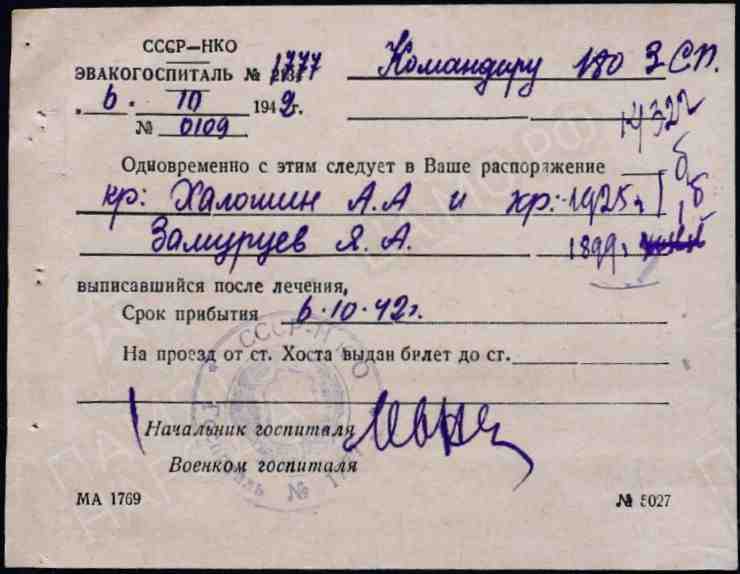 СССР—НКО
ЭВАКОГОСПИТАЛЬ № 1777
Командиру 180 ЗСП.
„ 6 " 10 1942г.
№ 0109
14322
Одновременно с этим следует в Ваше распоряжение
кр: Халошин А.А и кр: 1925г
Замуруев Я. А. 1899г
выписавшийся после лечения,
Срок прибытия 6·10·42г.
На проезд от ст. Хоста выдан билет до ст.
СССР-НКО
Начальник госпиталя
Военком госпиталя
МА 1769
№ 5027